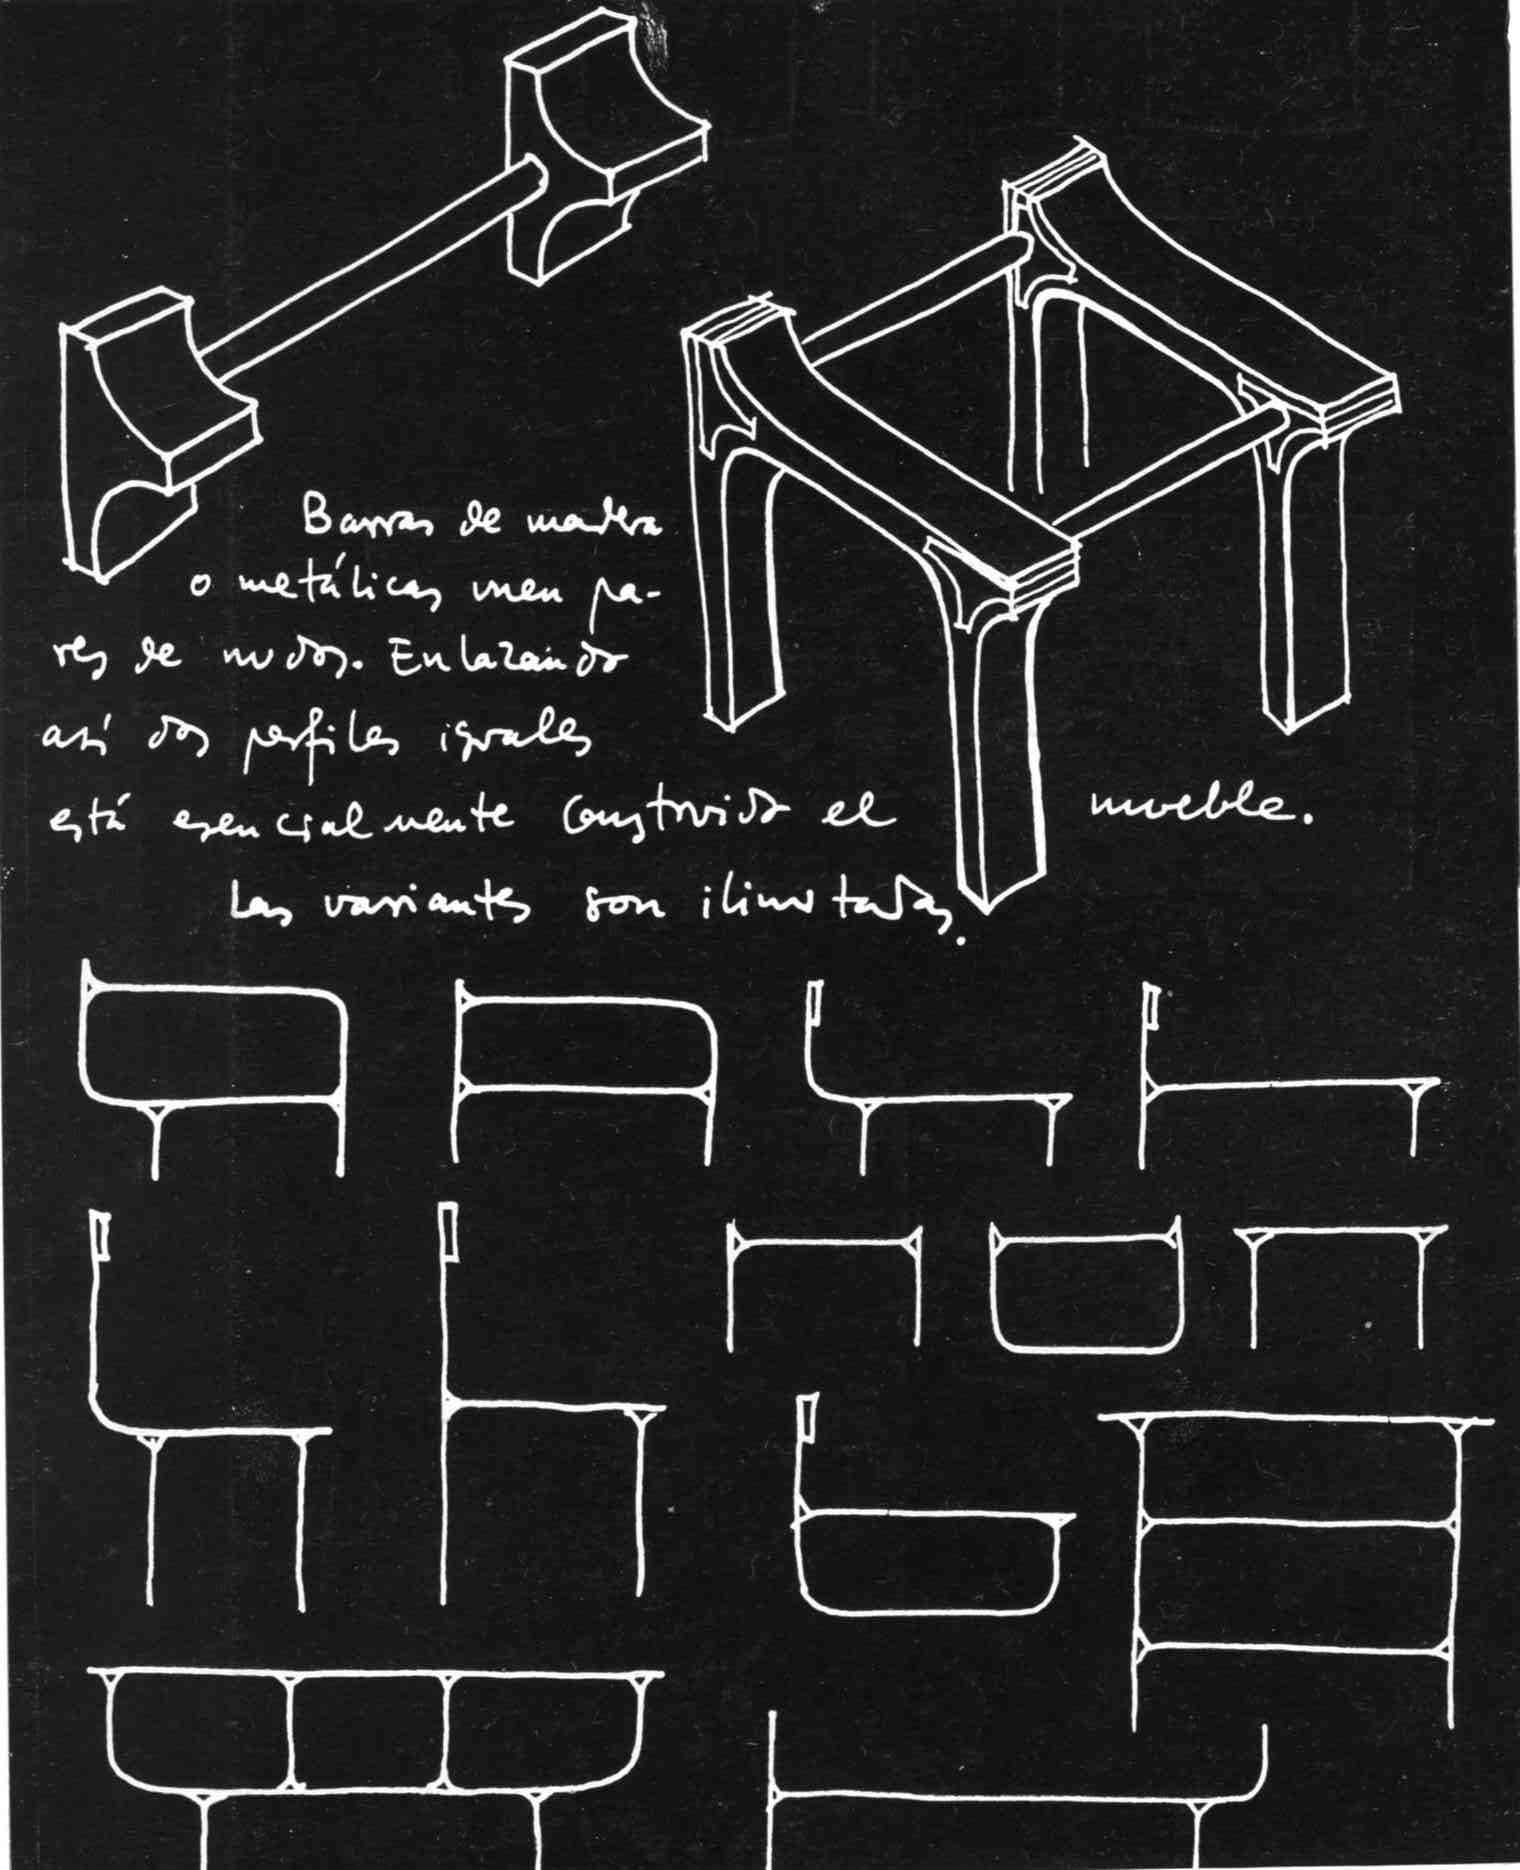 Barras de madera
o metálicas unen pa-
res de nudos. Enlazando
así dos perfiles iguales
está esencialmente construido el mueble.
Las variantes son ilimitadas.